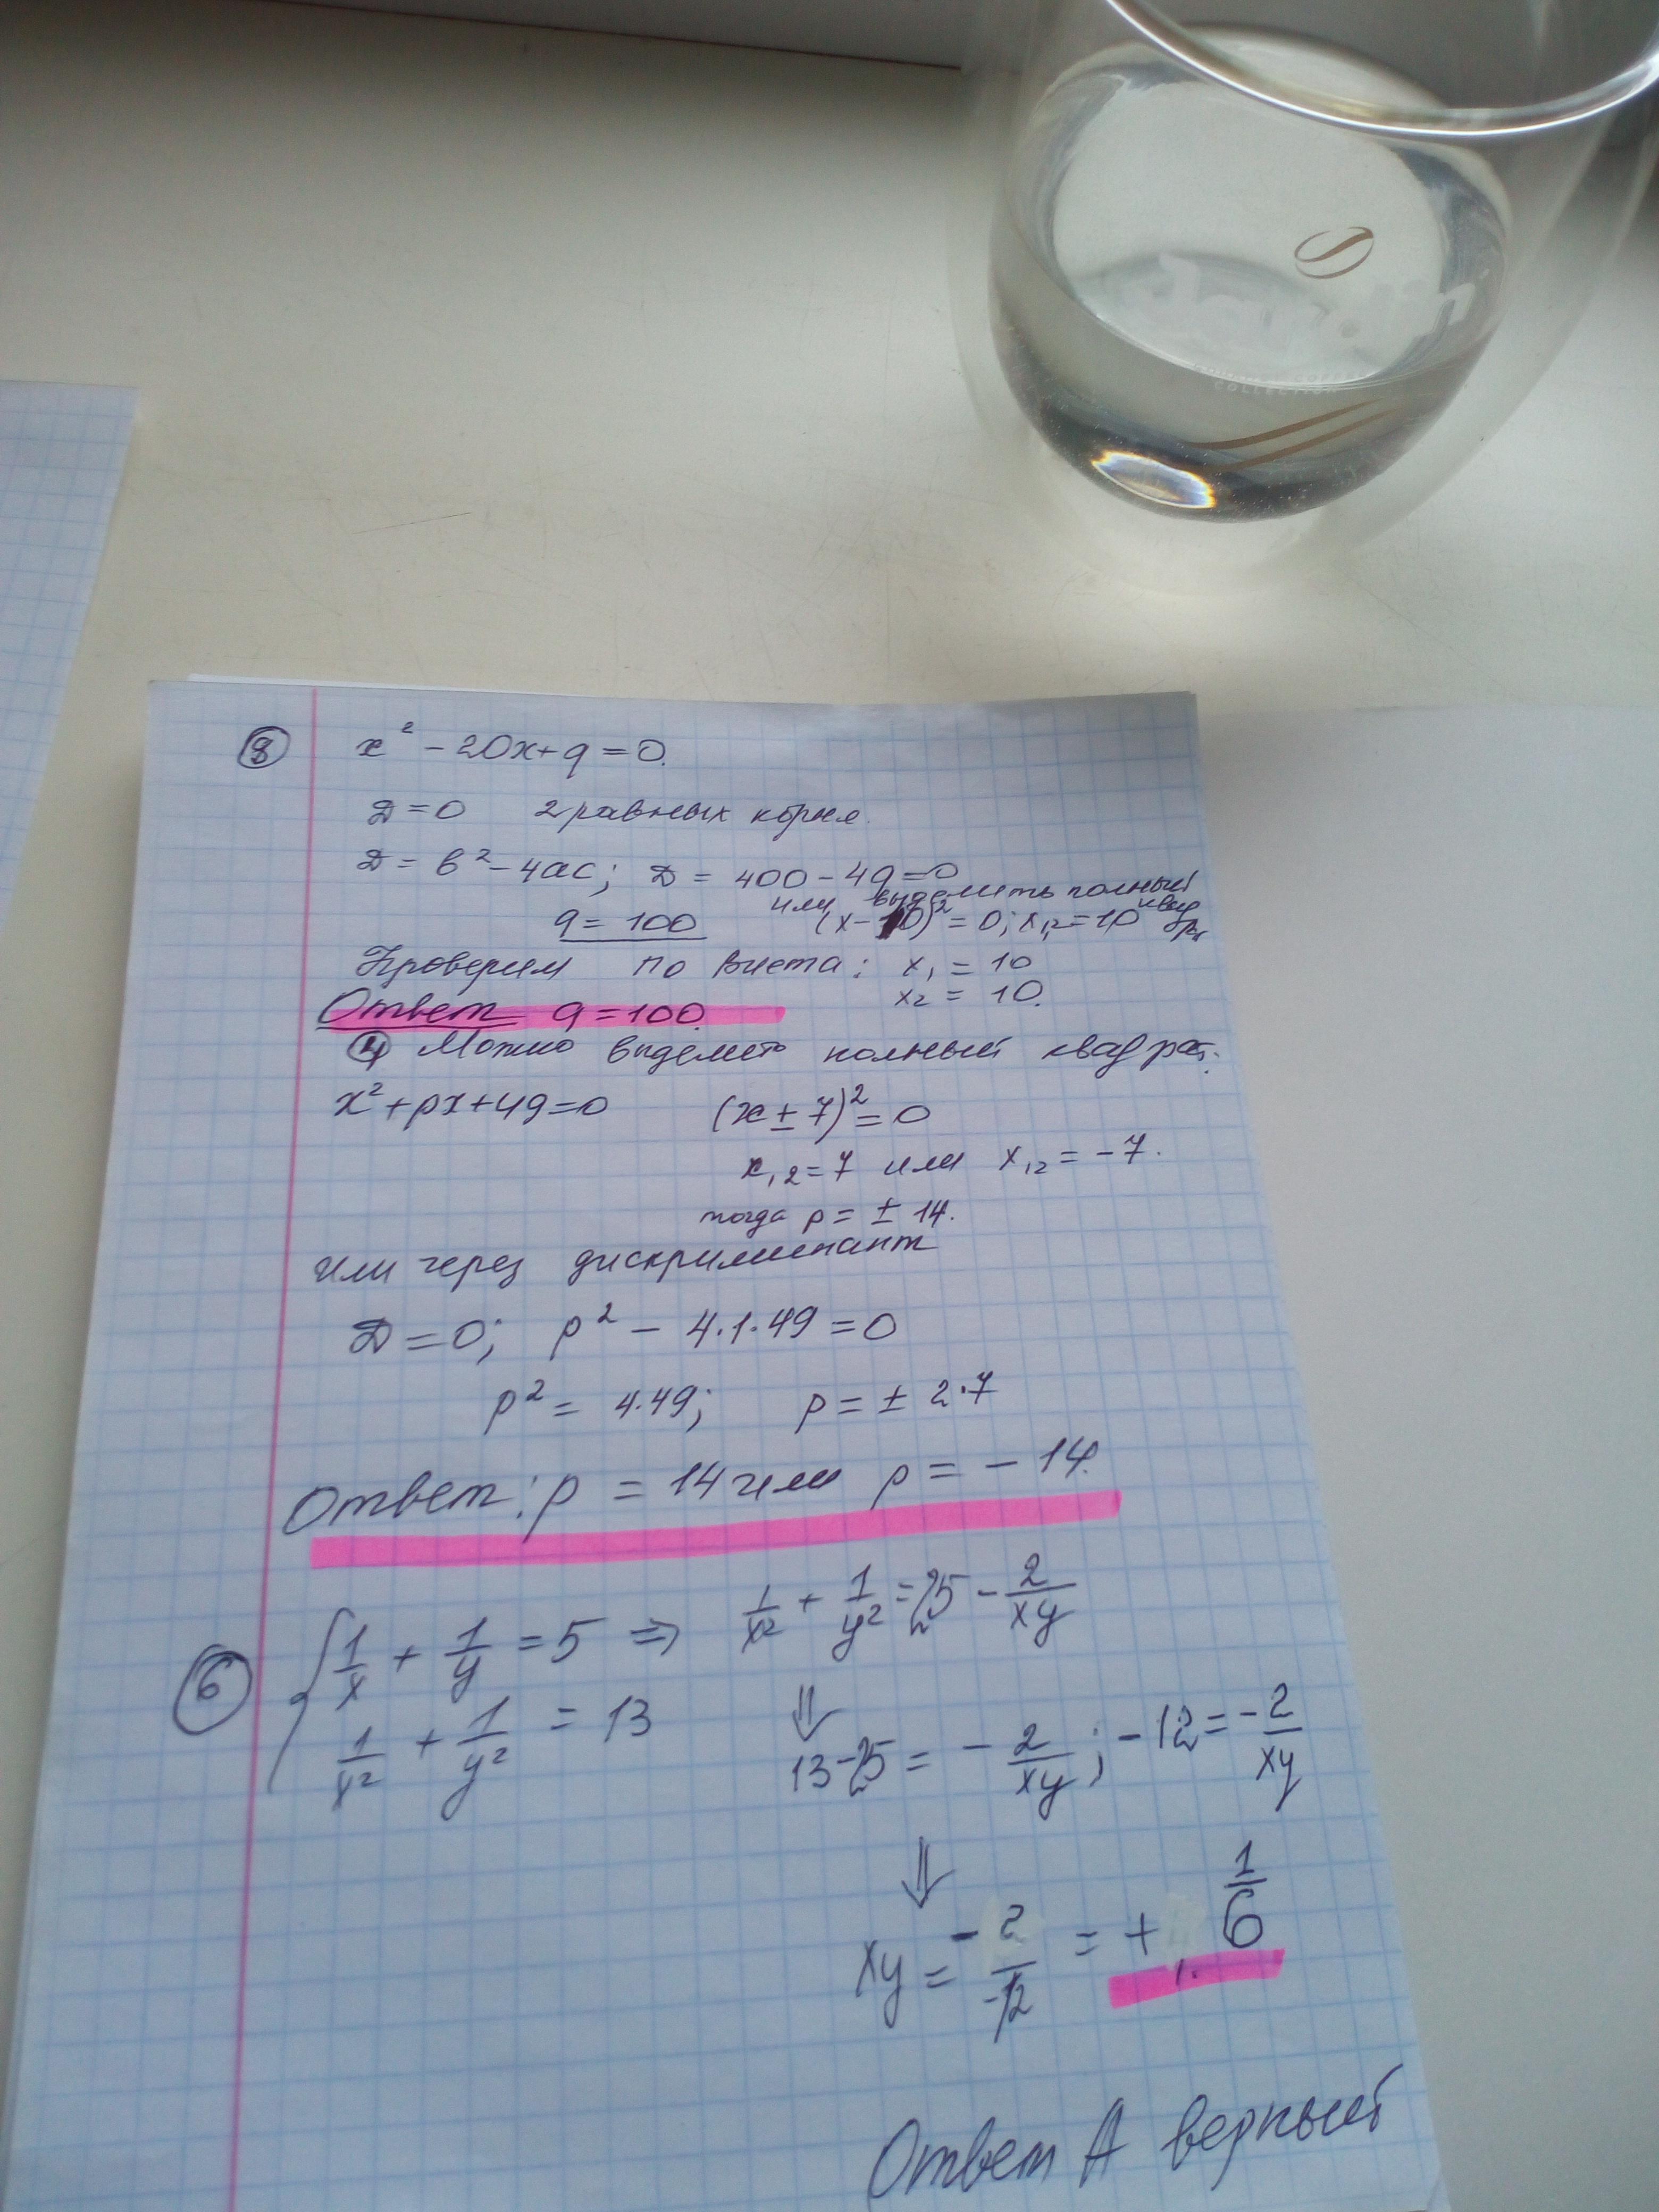 COLLECTION
8 x² - 20x + q = 0.
Д = 0 2 равных корня.
Д = в² - 4ас; Д = 400 - 4q = 0
или выделить полный квадрат
q = 100 (x - 10)² = 0; x₁,₂ = 10
Проверим по Виета: x₁ = 10
x₂ = 10.
Ответ q = 100.
4 Можно выделить полный квадрат.
x² + px + 49 = 0 (x ± 7)² = 0
x₁,₂ = 7 или x₁₂ = -7.
тогда p = ± 14.
или через дискриминант
Д = 0; p² - 4·1·49 = 0
p² = 4·49; p = ± 2·7
Ответ: p = 14 или p = - 14.
6 { 1/x + 1/y = 5 ⇒ 1/x² + 1/y² = 25 - 2/xy
1/x² + 1/y² = 13 ⇓
13 - 25 = - 2/xy; - 12 = -2/xy
⇓
xy = - 2/-12 = + 1/6
Ответ А верный